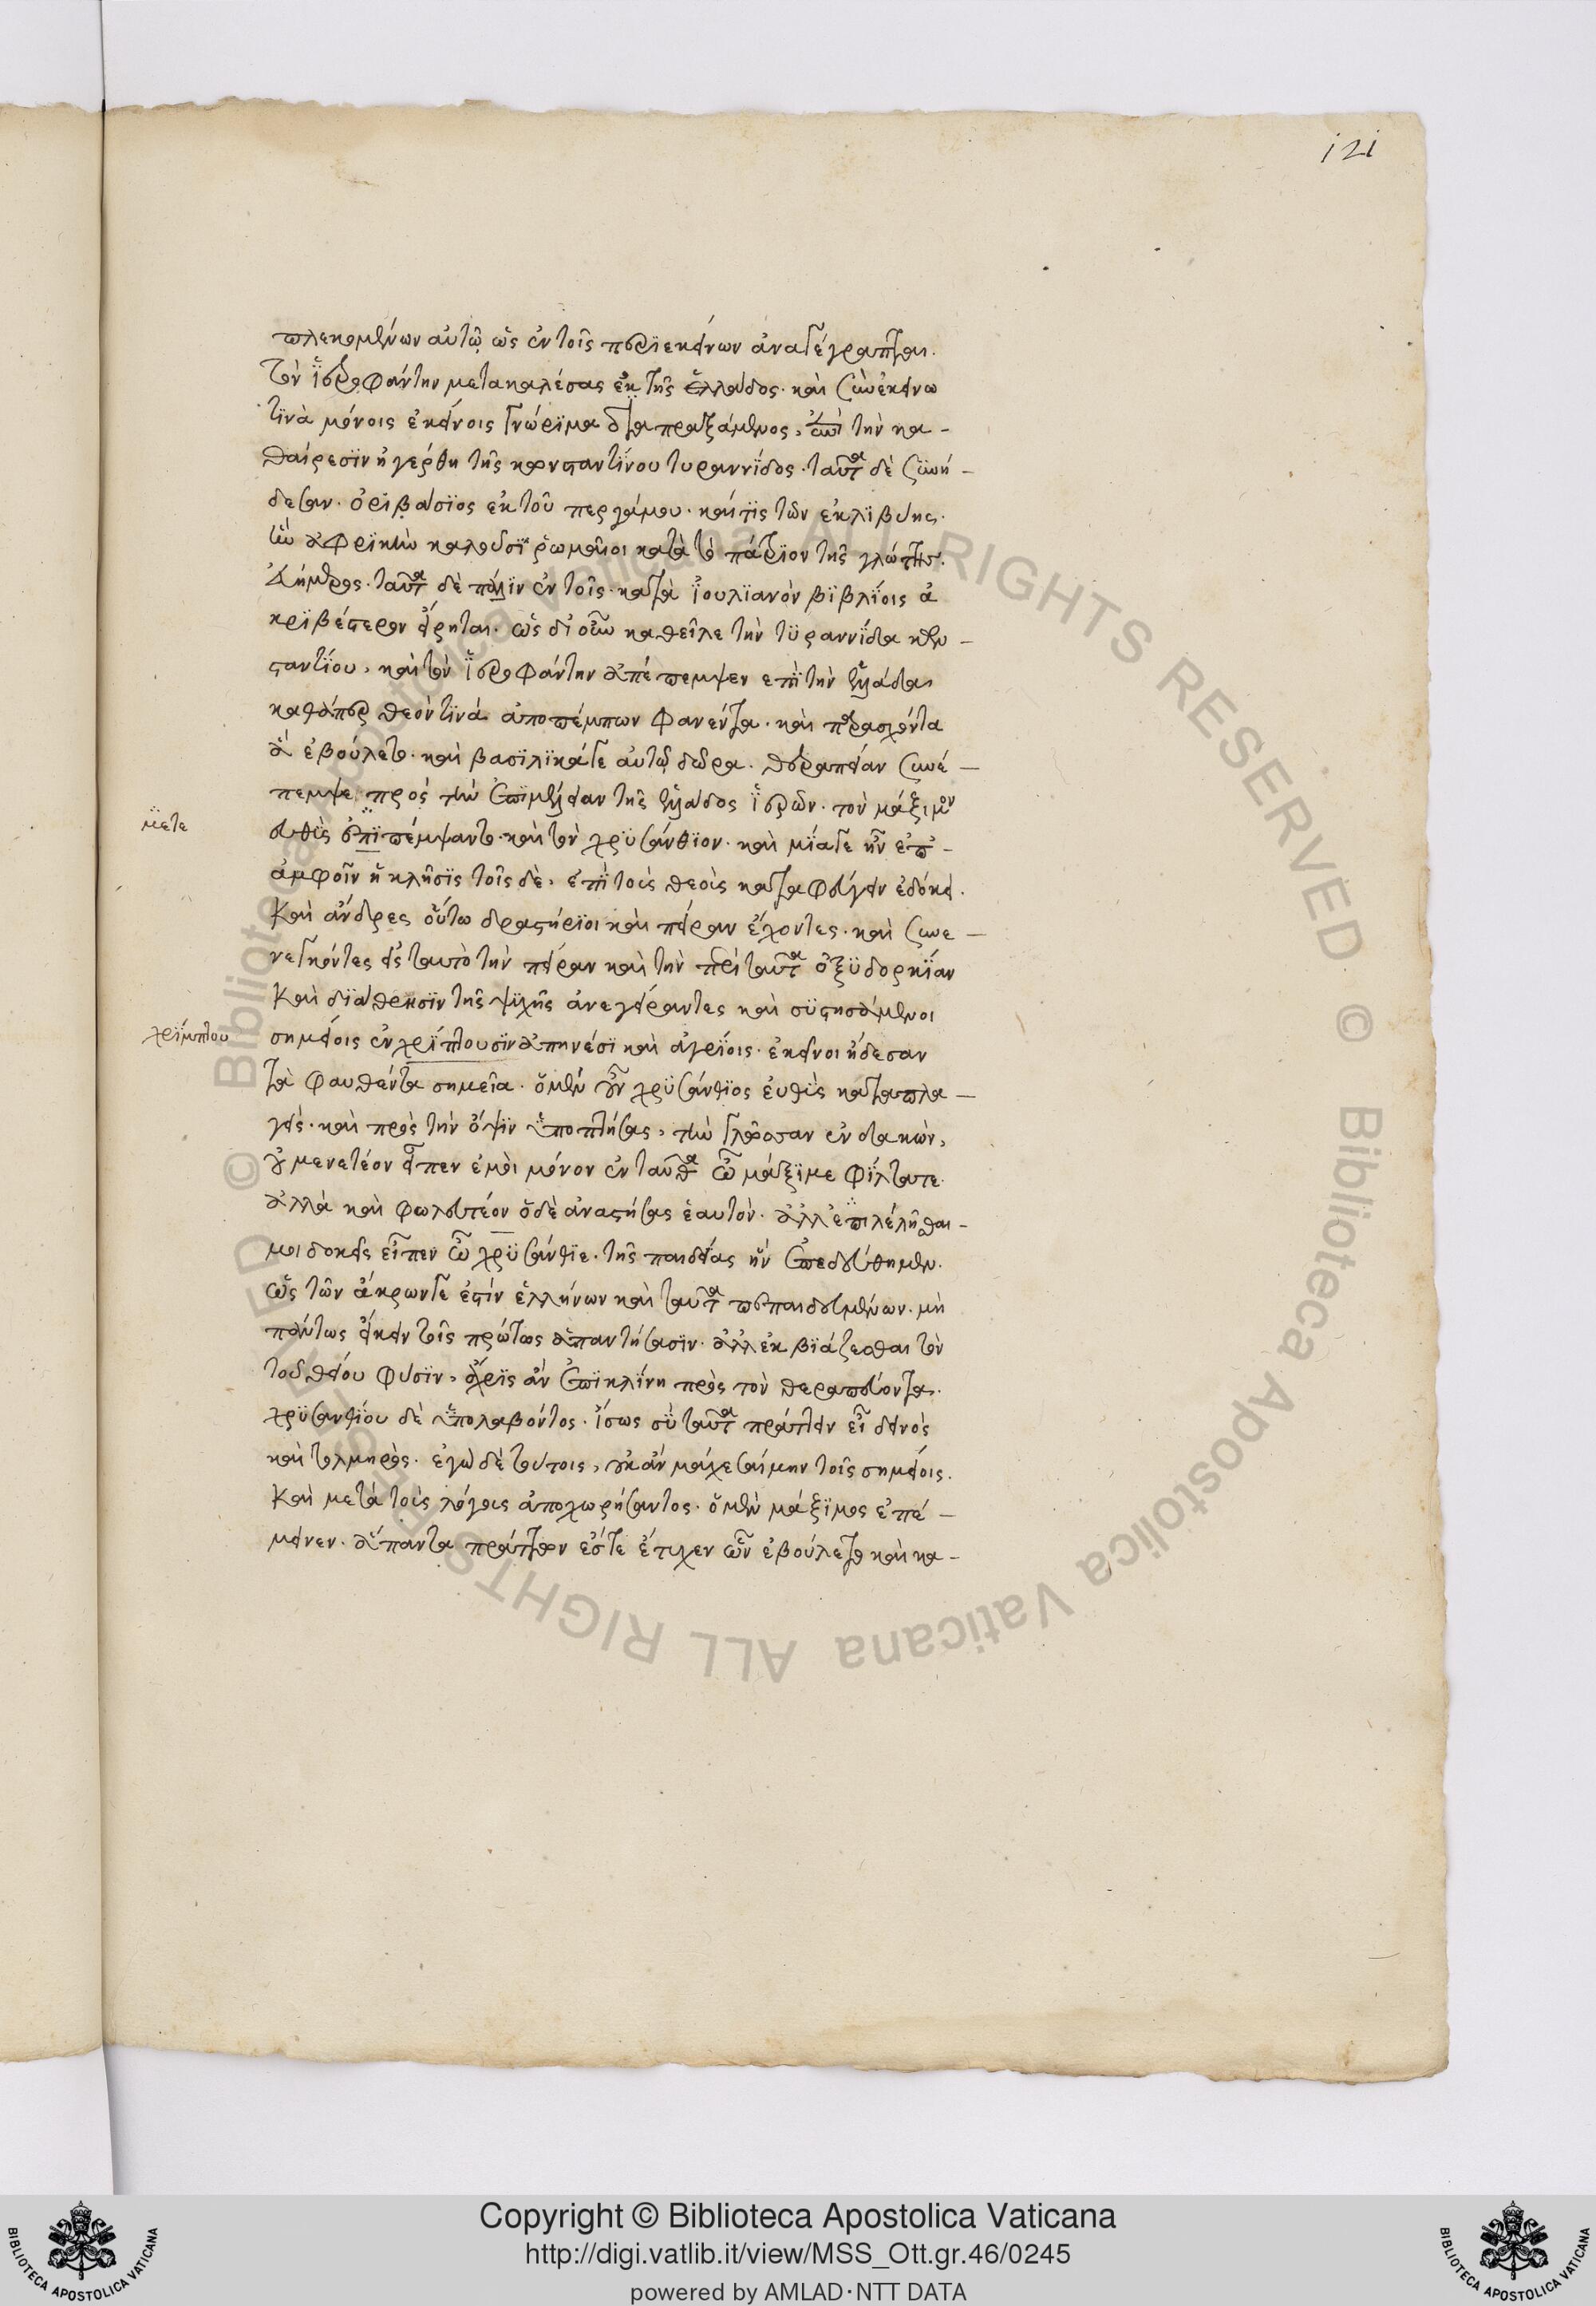 121
πλεκομένων αὐτῷ ὡς ἐν τοῖς περὶ ἐκείνων ἀναγέγραπται.
τὸν ἱεροφάντην μετακαλέσας ἐκ τῆς ἑλλάδος. καὶ σὺν ἐκείνω
τινὰ μόνοις ἐκείνοις γνώριμα διαπραξάμενος, ἐπὶ τὴν κα-
θαίρεσιν ἠγέρθη τῆς κωνσταντίνου τυραννίδος. ταῦτα δὲ συνή-
δεσαν. ὀριβάσιος ἐκ τοῦ περγάμου. καί τις τῶν ἐκ λιβύης.
ἣν ἀφρικὴν καλοῦσι ῥωμαῖοι κατὰ τὸ πάτριον τῆς γλώττης.
εὐήμερος. ταῦτα δὲ πάλιν ἐν τοῖς κατὰ ἰουλιανὸν βιβλίοις ἀ
κριβέστερον εἴρηται. ὡς δ' οὖν καθεῖλε τὴν τυραννίδα κων-
σταντίου, καὶ τὸν ἱεροφάντην ἀπέπεμψεν ἐπὶ τὴν ἑλλάδα,
καθάπερ θεόν τινά ἀποπέμπων φανέντα. καὶ παρασχόντα
ἃ ἐβούλετο. καὶ βασιλικά τε αὐτῷ δῶρα. θεραπείαν συνέ-
πεμψε πρὸς τὴν ἐπιμέλειαν τῆς ἑλλάδος ἱερῶν. τὸν μάξιμον
μετε
εὐθὺς ἐπιπέμψαντο. καὶ τὸν χρυσάνθιον. καὶ μία τε ἦν ἐπ'-
ἀμφοῖν ἡ κλῆσις τοῖς δὲ, ἐπὶ τοὺς θεοὺς καταφεύγειν ἐδόκει.
Καὶ ἄνδρες οὕτω δραστήριοι καὶ πεῖραν ἔχοντες. καὶ συνε-
νεγκόντες εἰς ταυτὸ τὴν πεῖραν καὶ τὴν περὶ ταῦτα ὀξυδορκίαν
Καὶ διάθρησιν τῆς ψυχῆς ἀνεγείραντες καὶ συστησάμενοι
χρίμπτου
σημείοις ἐνχρίπτουσιν ἀπηνέσι καὶ ἀγρίοις. ἐκεῖνοι ᾔδεσαν
τὰ φανθέντα σημεῖα. ὁ μὲν οὖν χρυσάνθιος εὐθὺς καταπλα-
γεὶς. καὶ πρὸς τὴν ὄψιν ὑποπτήξας, τὴν γλῶσσαν ἐνδακὼν,
οὐ μενετέον εἶπεν ἐμοὶ μόνον ἐνταῦθα ὦ μάξιμε φίλτατε.
ἀλλὰ καὶ φωλευτέον ὁ δὲ ἀναστήσας ἑαυτὸν. ἀλλ' ἐπιλέλησθαι-
μοι δοκεῖς εἶπεν ὦ χρυσάνθιε. τῆς παιδείας ἣν ἐπαιδεύθημεν.
ὡς τῶν ἄκρων τε ἐστίν ἑλλήνων καὶ ταῦτα πεπαιδευμένων. μὴ
πάντως εἴκειν τοῖς πρώτως ἀπαντήσασιν. ἀλλ' ἐκβιάζεσθαι τὸν
τοῦ θείου φύσιν, ἄχρις ἂν ἐπικλίνῃ πρὸς τὸν θεραπεύοντα.
χρυσανθίου δὲ ὑπολαβόντος. ἴσως σὺ ταῦτα πράττειν εἶ δεινὸς
καὶ τολμηρὸς. ἐγὼ δὲ τούτοις, οὐκ ἂν μαχεσαίμην τοῖς σημείοις.
Καὶ μετὰ τοὺς λόγους ἀποχωρήσαντος. ὁ μὲν μάξιμος ἐπέ-
μεινεν. ἅπαντα πράττων ἔστε ἔτυχεν ὧν ἐβούλετο καὶ κα-
Copyright © Biblioteca Apostolica Vaticana
http://digi.vatlib.it/view/MSS_Ott.gr.46/0245
powered by AMLAD·NTT DATA